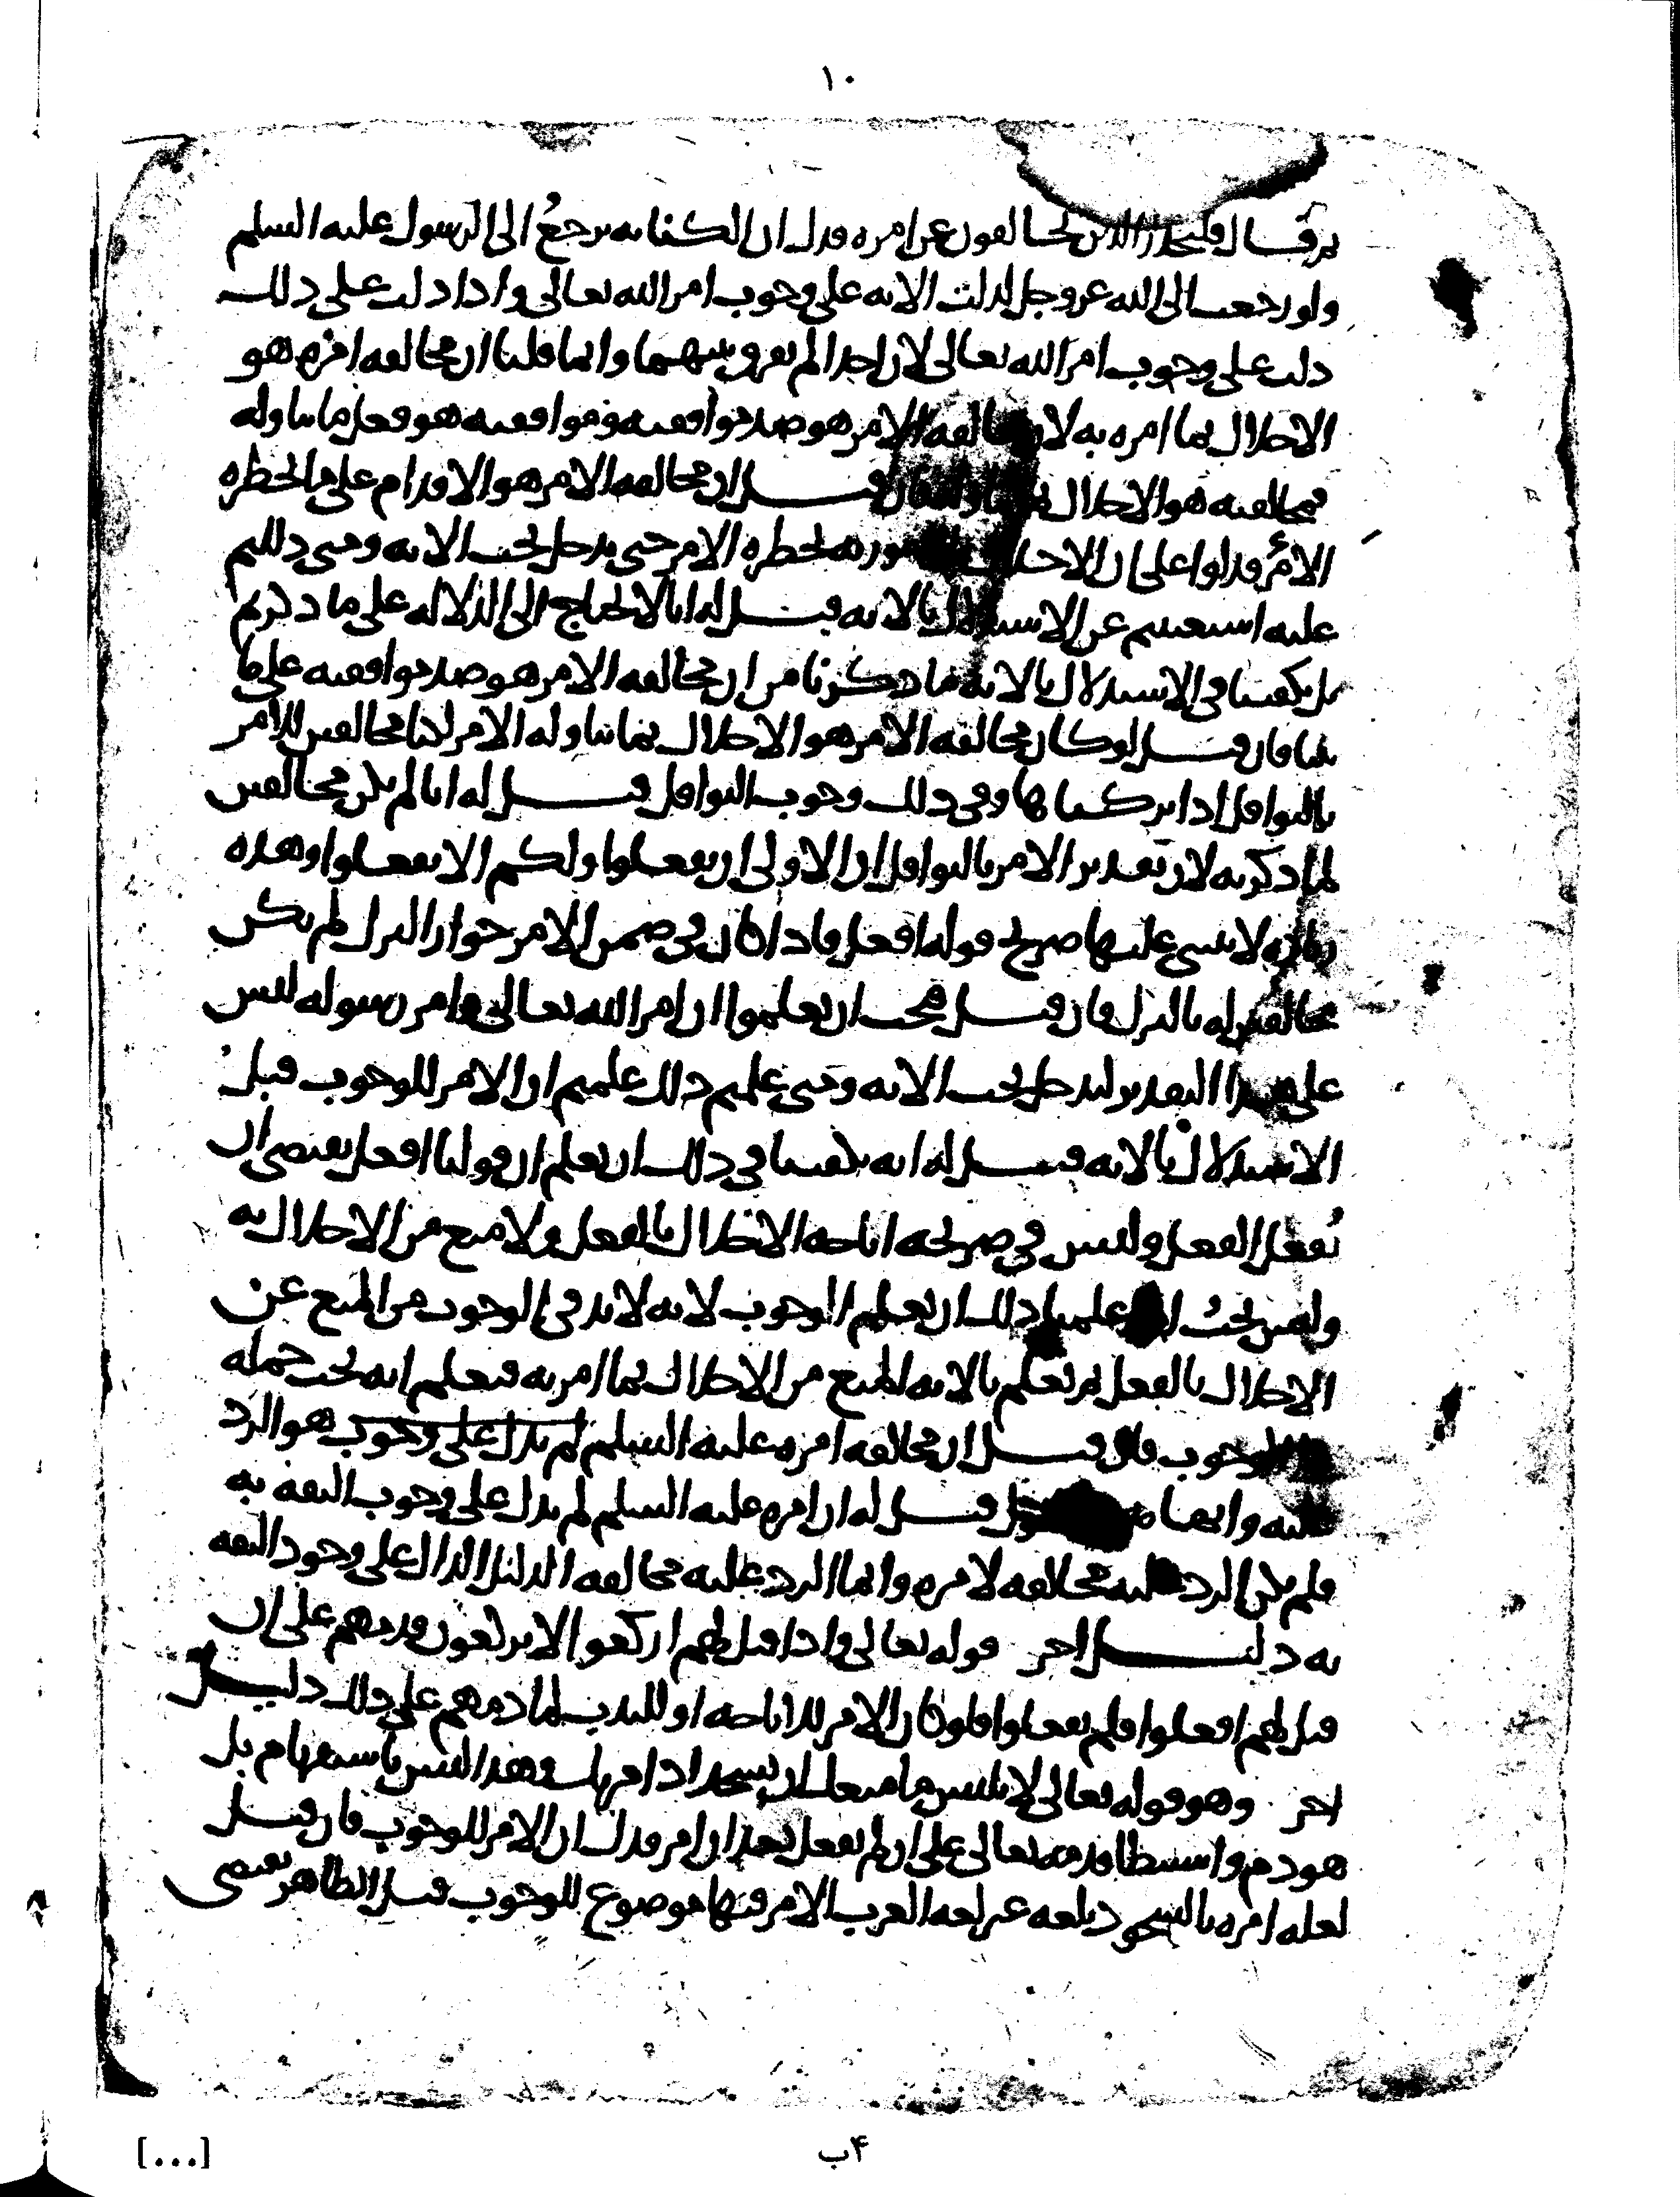 ١٠
ثم قال فليحذر الذين يخالفون عن امره فدل ان الكناىه ترجع الى الرسول عليه السلم
ولو رجعت الى الله عز وجل لدلت الايه على وجوب امر الله تعالى واذا دلت على ذلك
دلت على وجوب امر الله تعالى لان احدا لم يفرق بينهما وانما قلنا ان مخالفه امره هو
الاخلال بما امره به لان مخالفه الامر هو ضد موافقته وموافقته هو فعل ما تناوله
فمخالفته هو الاخلال فان قيل ان مخالفه الامر هو الاقدام على ما يحظره
الامر فدلوا على ان الاخلال يحظره الامر حتى يدخل تحت الايه ومتى دللتم
عليه استغنيتم عن الاستدلال بالايه قيل له انا لا نحتاج الى الدلاله على ما ذكرتم
بل يكفينا في الاستدلال بالايه ما ذكرنا من ان مخالفه الامر هو ضد موافقته على ما
بينا فان قيل لو كان مخالفه الامر هو الاخلال بما تناوله الامر لكنا مخالفين للامر
بالنوافل اذا تركناها وفي ذلك وجوب النوافل قيل له انا لم نكن مخالفين
لما ذكرته لان تقدير الامر بالنوافل ان الاولى ان تفعلوا ولكم الا تفعلوا وهذه
زياده لا ينبى عليها صريح قوله افعل فاذا كان في ضمن الامر جواز الترك لم نكن
مخالفين له بالترك فان قيل فيجب ان تعلموا ان امر الله تعالى وامر رسوله ليس
على هذا التقدير ليدخل تحت الايه ومتى علمتم ذلك علمتم ان الامر للوجوب قبل
الاستدلال بالايه قيل له انه يكفينا في ذلك ان نعلم ان قولنا افعل يقتضي ان
نفعل الفعل وليس في صريحه اباحه الاخلال بالفعل ولا منع من الاخلال به
وليس يجب اذا علمنا ذلك ان نعلم الوجوب لانه لا بد في الوجوب من المنع عن
الاخلال بالفعل ثم نعلم بالايه المنع من الاخلال بما امر به فنعلم انه تحت جمله
الوجوب فان قيل ان مخالفه امره عليه السلم لم يدل على وجوب هو الرد
عليه قيل له ان امره عليه السلم لم يدل على وجوب الثقه به
فلم يكن الرد عليه مخالفه لامره وانما الرد عليه مخالفه الدليل الدال على وجود الثقه
به دليل اخر قوله تعالى واذا قيل لهم اركعوا لا يركعون فذمهم على ان
قيل لهم افعلوا فلم يفعلوا فلو كان الامر للاباحه او للندب لما ذمهم على ذلك دليل
اخر وهو قوله تعالى لابليس ما منعك ان تسجد اذ امرتك وهذا ليس باستفهام بل
هو ذم واستبطا فذمه تعالى على ان لم يفعل بعد ان امر فدل ان الامر للوجوب فان قيل
لعله امره بالسجود بلغه غير لغه العرب الامر فيها موضوع للوجوب قيل الظاهر يقتضي
۴ب
[...]